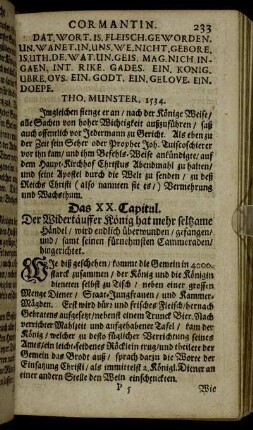 CORMANTIN.
233
DAT, WORT. IS. FLEISCH. GEWORDEN.
UN. WANET. IN. UNS. WE. NICHT, GEBORE.
IS, UTH. DE. WAT. UN. GEIS. MAG. NICH IN-
GAEN, INT. RIKE. GADES. EIN, KONIG.
UBRE, OVS. EIN. GODT. EIN, GELOVE. EIN.
DOEPE.
THO. MUNSTER, 1534.
Imgleichen fienge er an / nach der Könige Weise /
alle Sachen von hoher Wichtigkeit außzuführen / saß
auch offentlich vor Jedermann zu Gericht. Als eben zu
der Zeit sein Seher oder Prophet Joh. Tuiscoschierer
vor ihn kam / und ihm Befehls-Weise ankündigte / auf
dem Haupt-Kirchhof Christus Abendmahl zu halten /
und seine Apostel durch die Welt zu senden / zu deß
Reichs Christi ( also nannten sie es / ) Vermehrung
und Wachsthum.
Das XX. Capitul.
Der Widertäuffer König hat mehr seltzame
Händel / wird endlich überwunden / gefangen /
und / samt seinen fürnehmsten Cammeraden /
hingerichtet.
Wie diß geschehen / kommt die Gemein in 4000.
starck zusammen / der König und die Königin
dieneten selbst zu Tisch / neben einer grossen
Menge Diener / Staat-Jungfrauen / und Kammer-
Mägden. Erst wird dürr und frisches Fleisch / hernach
Gebratens aufgesetzt / nebenst einem Trunck Bier. Nach
verrichter Mahlzeit und aufgehabener Tafel / kam der
König / welcher zu desto füglicher Verrichtung seines
Amts / ein leicht-seidenes Röcklein trug / und theilete der
Gemein das Brodt auß / sprach darzu die Worte der
Einsatzung Christi / als immittelst 2. Königl. Diener an
einer andern Stelle den Wein einschenckten.
P 5
Wie